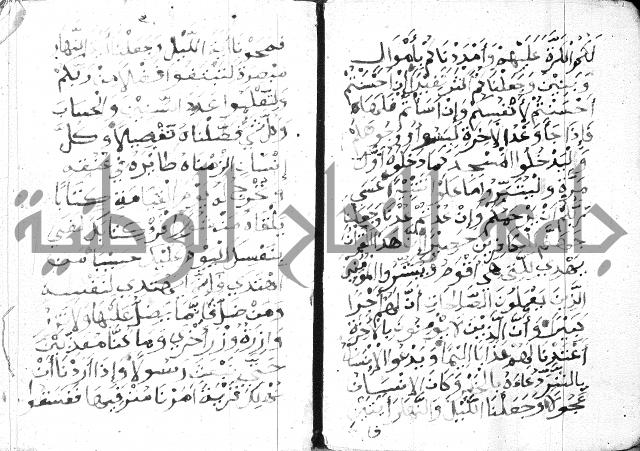 لكم الكرة عليهم وأمددناكم بأموال
وبنين وجعلناكم أكثر نفيرا إن أحسنتم
أحسنتم لأنفسكم وإن أسأتم فلها
فإذا جاء وعد الآخرة ليسوءوا وجوهكم
وليدخلوا المسجد كما دخلوه أول
مرة وليتبروا ما علوا تتبيرا عسى
ربكم أن يرحمكم وإن عدتم عدنا وجعلنا
جهنم للكافرين حصيرا إن هذا القرآن
يهدي للتي هي أقوم ويبشر المؤمنين
الذين يعملون الصالحات أن لهم أجرا
كبيرا وأن الذين لا يؤمنون بالآخرة
أعتدنا لهم عذابا أليما ويدعو الإنسان
بالشر دعاءه بالخير وكان الإنسان
عجولا وجعلنا الليل والنهار آيتين
فمحونا آية الليل وجعلنا آية النهار
مبصرة لتبتغوا فضلا من ربكم
ولتعلموا عدد السنين والحساب
وكل شيء فصلناه تفصيلا وكل
إنسان ألزمناه طائره في عنقه
ونخرج له يوم القيامة كتابا
يلقاه منشورا اقرأ كتابك كفى
بنفسك اليوم عليك حسيبا من
اهتدى فإنما يهتدي لنفسه
ومن ضل فإنما يضل عليها ولا تزر
وازرة وزر أخرى وما كنا معذبين
حتى نبعث رسولا وإذا أردنا أن
نهلك قرية أمرنا مترفيها ففسقوا
جامعة النجاح الوطنية